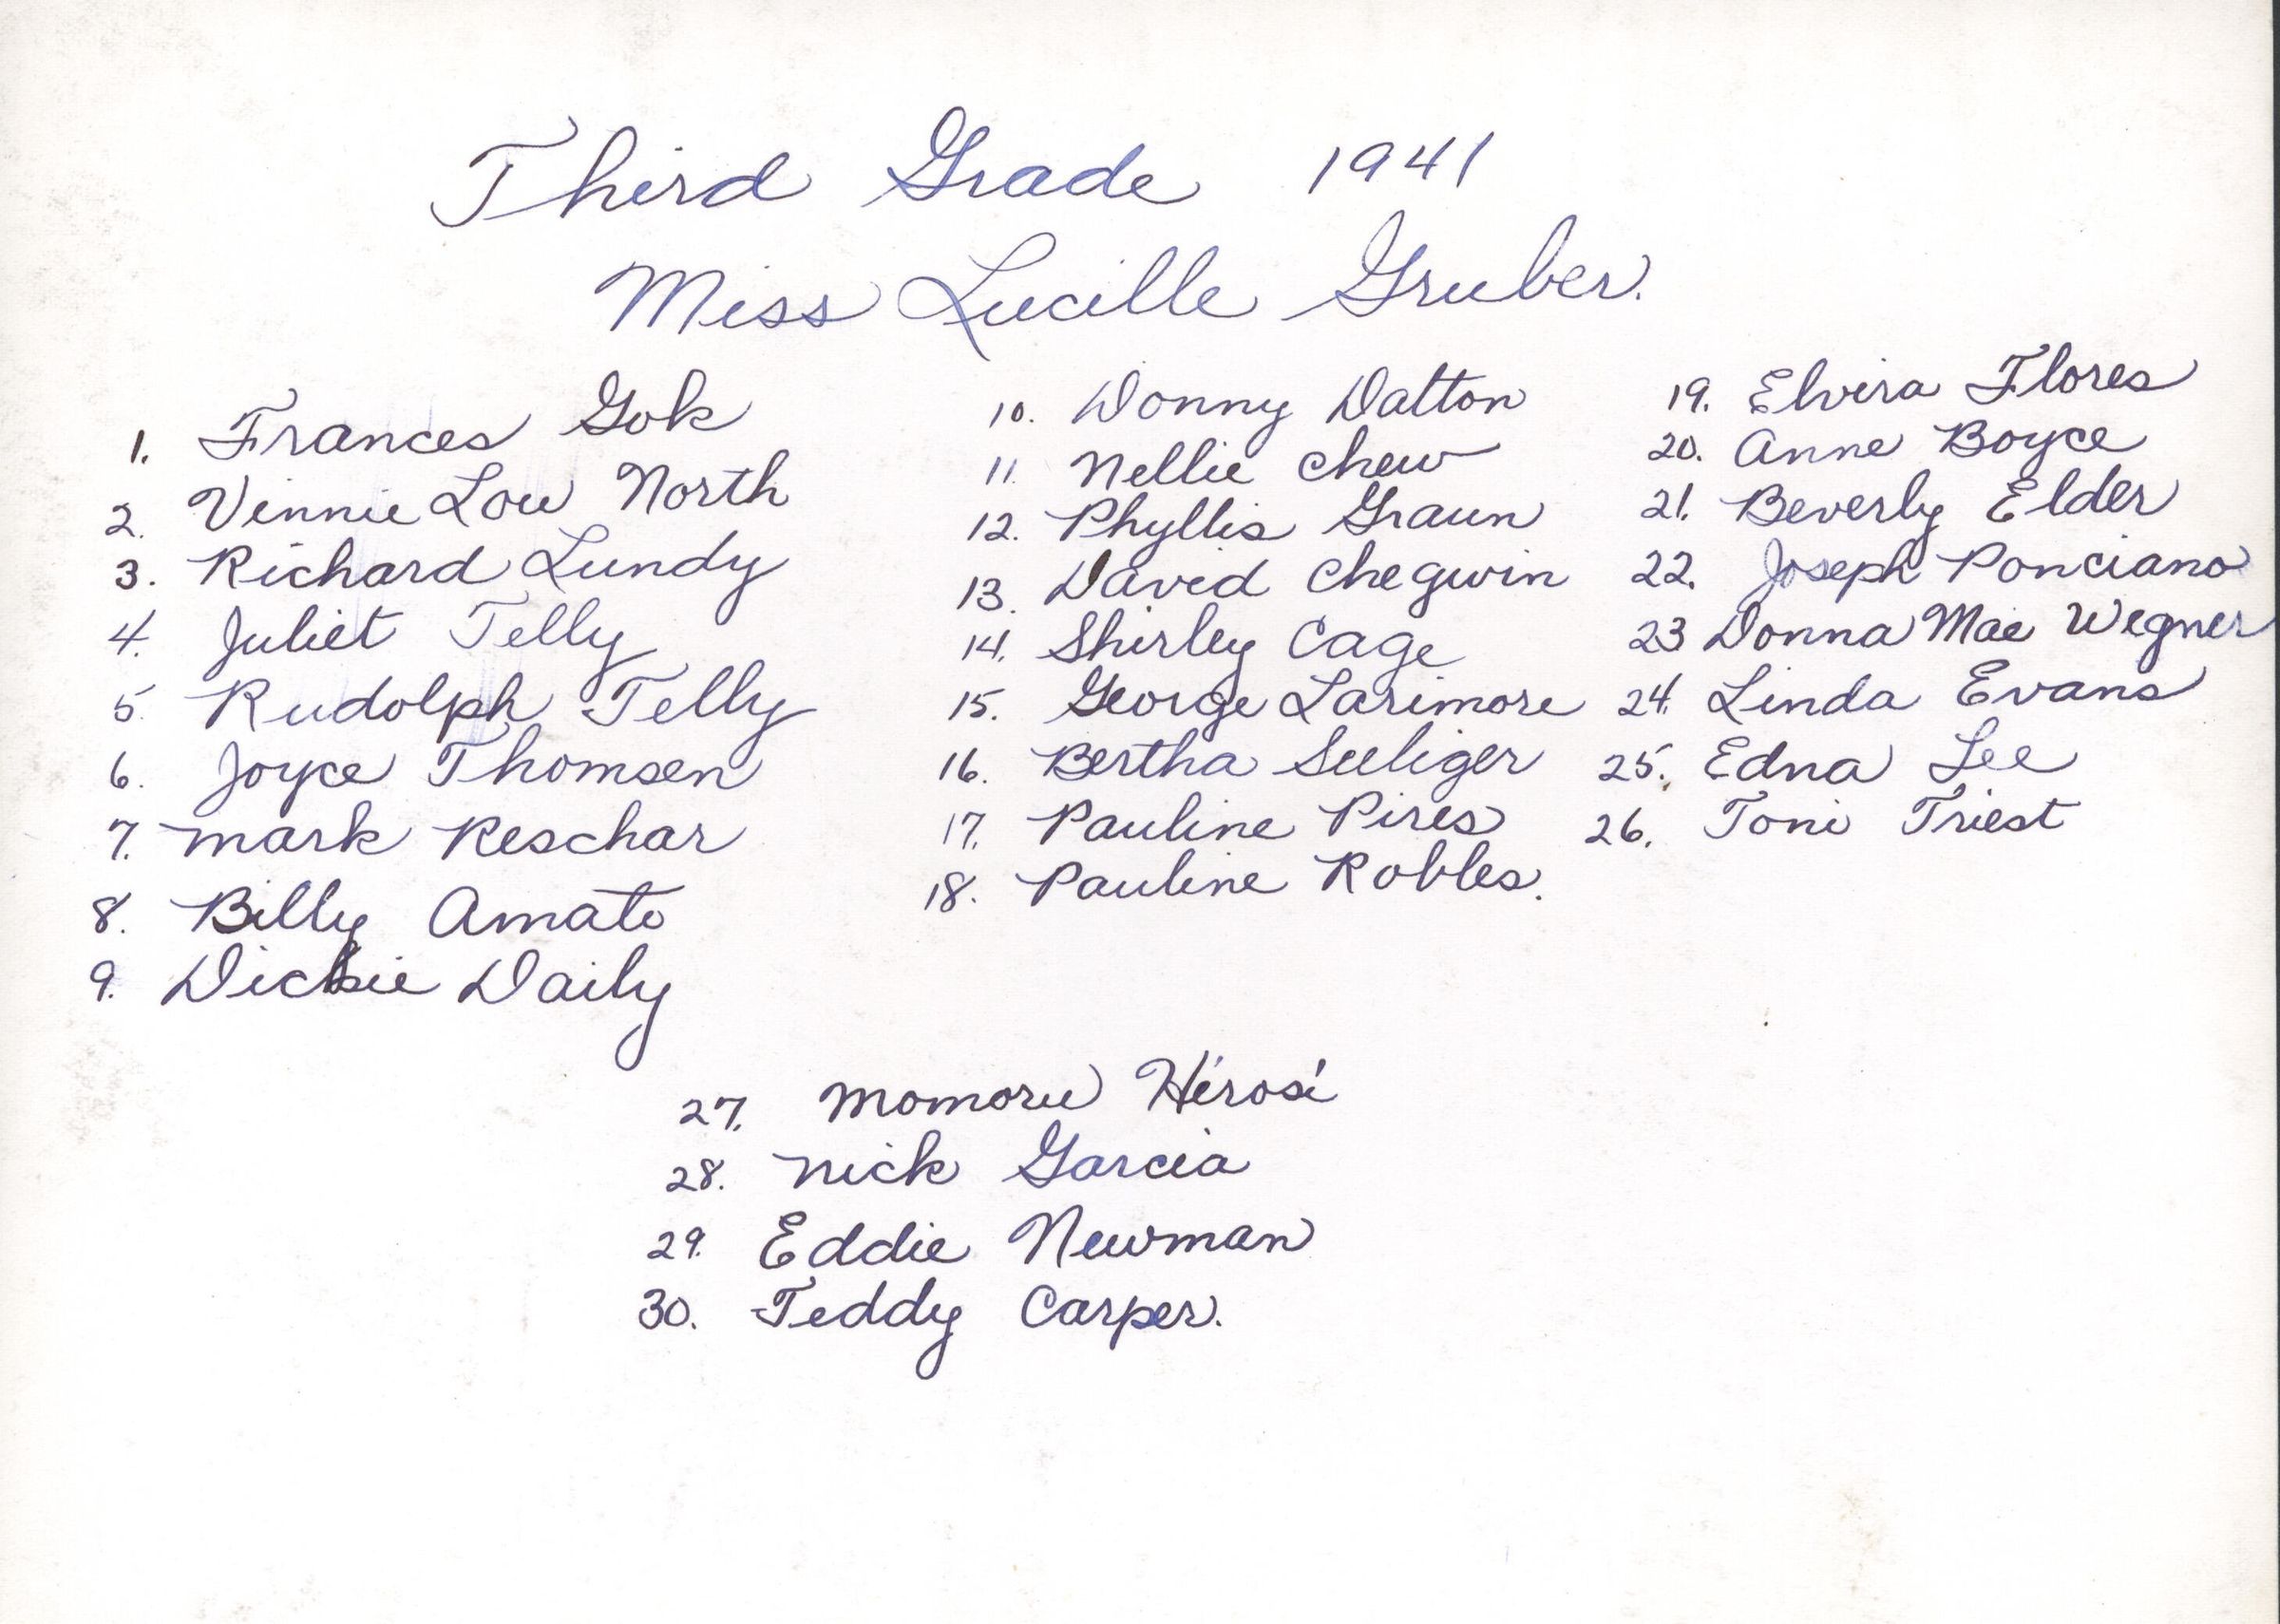 Third Grade 1941
Miss Lucille Gruber.
1. Frances Gok
2. Vinnie Lou North
3. Richard Lundy
4. Juliet Telly
5. Rudolph Telly
6. Joyce Thomsen
7. Mark Reschar
8. Billy Amato
9. Dickie Daily
10. Donny Dalton
11. Nellie Chew
12. Phyllis Graun
13. David Chegwin
14. Shirley Cage
15. George Larimore
16. Bertha Seeliger
17. Pauline Pires
18. Pauline Robles.
19. Elvira Flores
20. Anne Boyce
21. Beverly Elder
22. Joseph Ponciano
23 Donna Mae Wegner
24. Linda Evans
25. Edna Lee
26. Toni Triest
27. Momoru Hirosi
28. Nick Garcia
29. Eddie Newman
30. Teddy Carper.